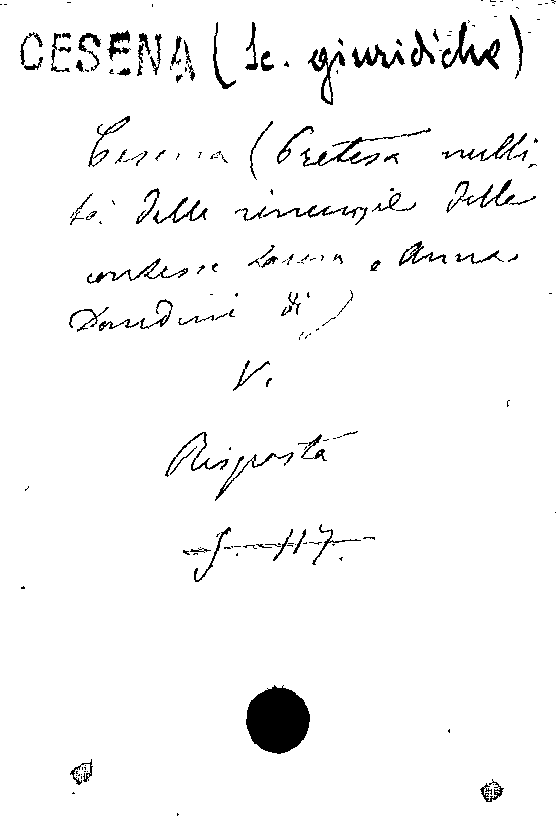 CESENA (Sc. giuridiche)
Cesena (Pretesa nulli-
tà delle rinunzie delle
contesse Laura e Anna
Dandini di)
V.
Risposta
S. 117.